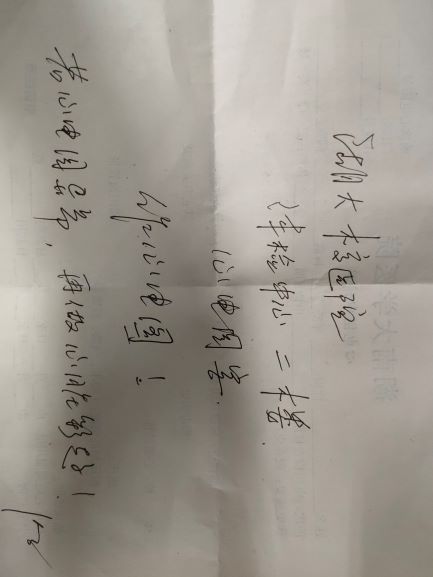 湖南大学医院
湖大校医院
体检中心二楼
心电图室
作心电图！
若心电图异常，再做心脏彩超！